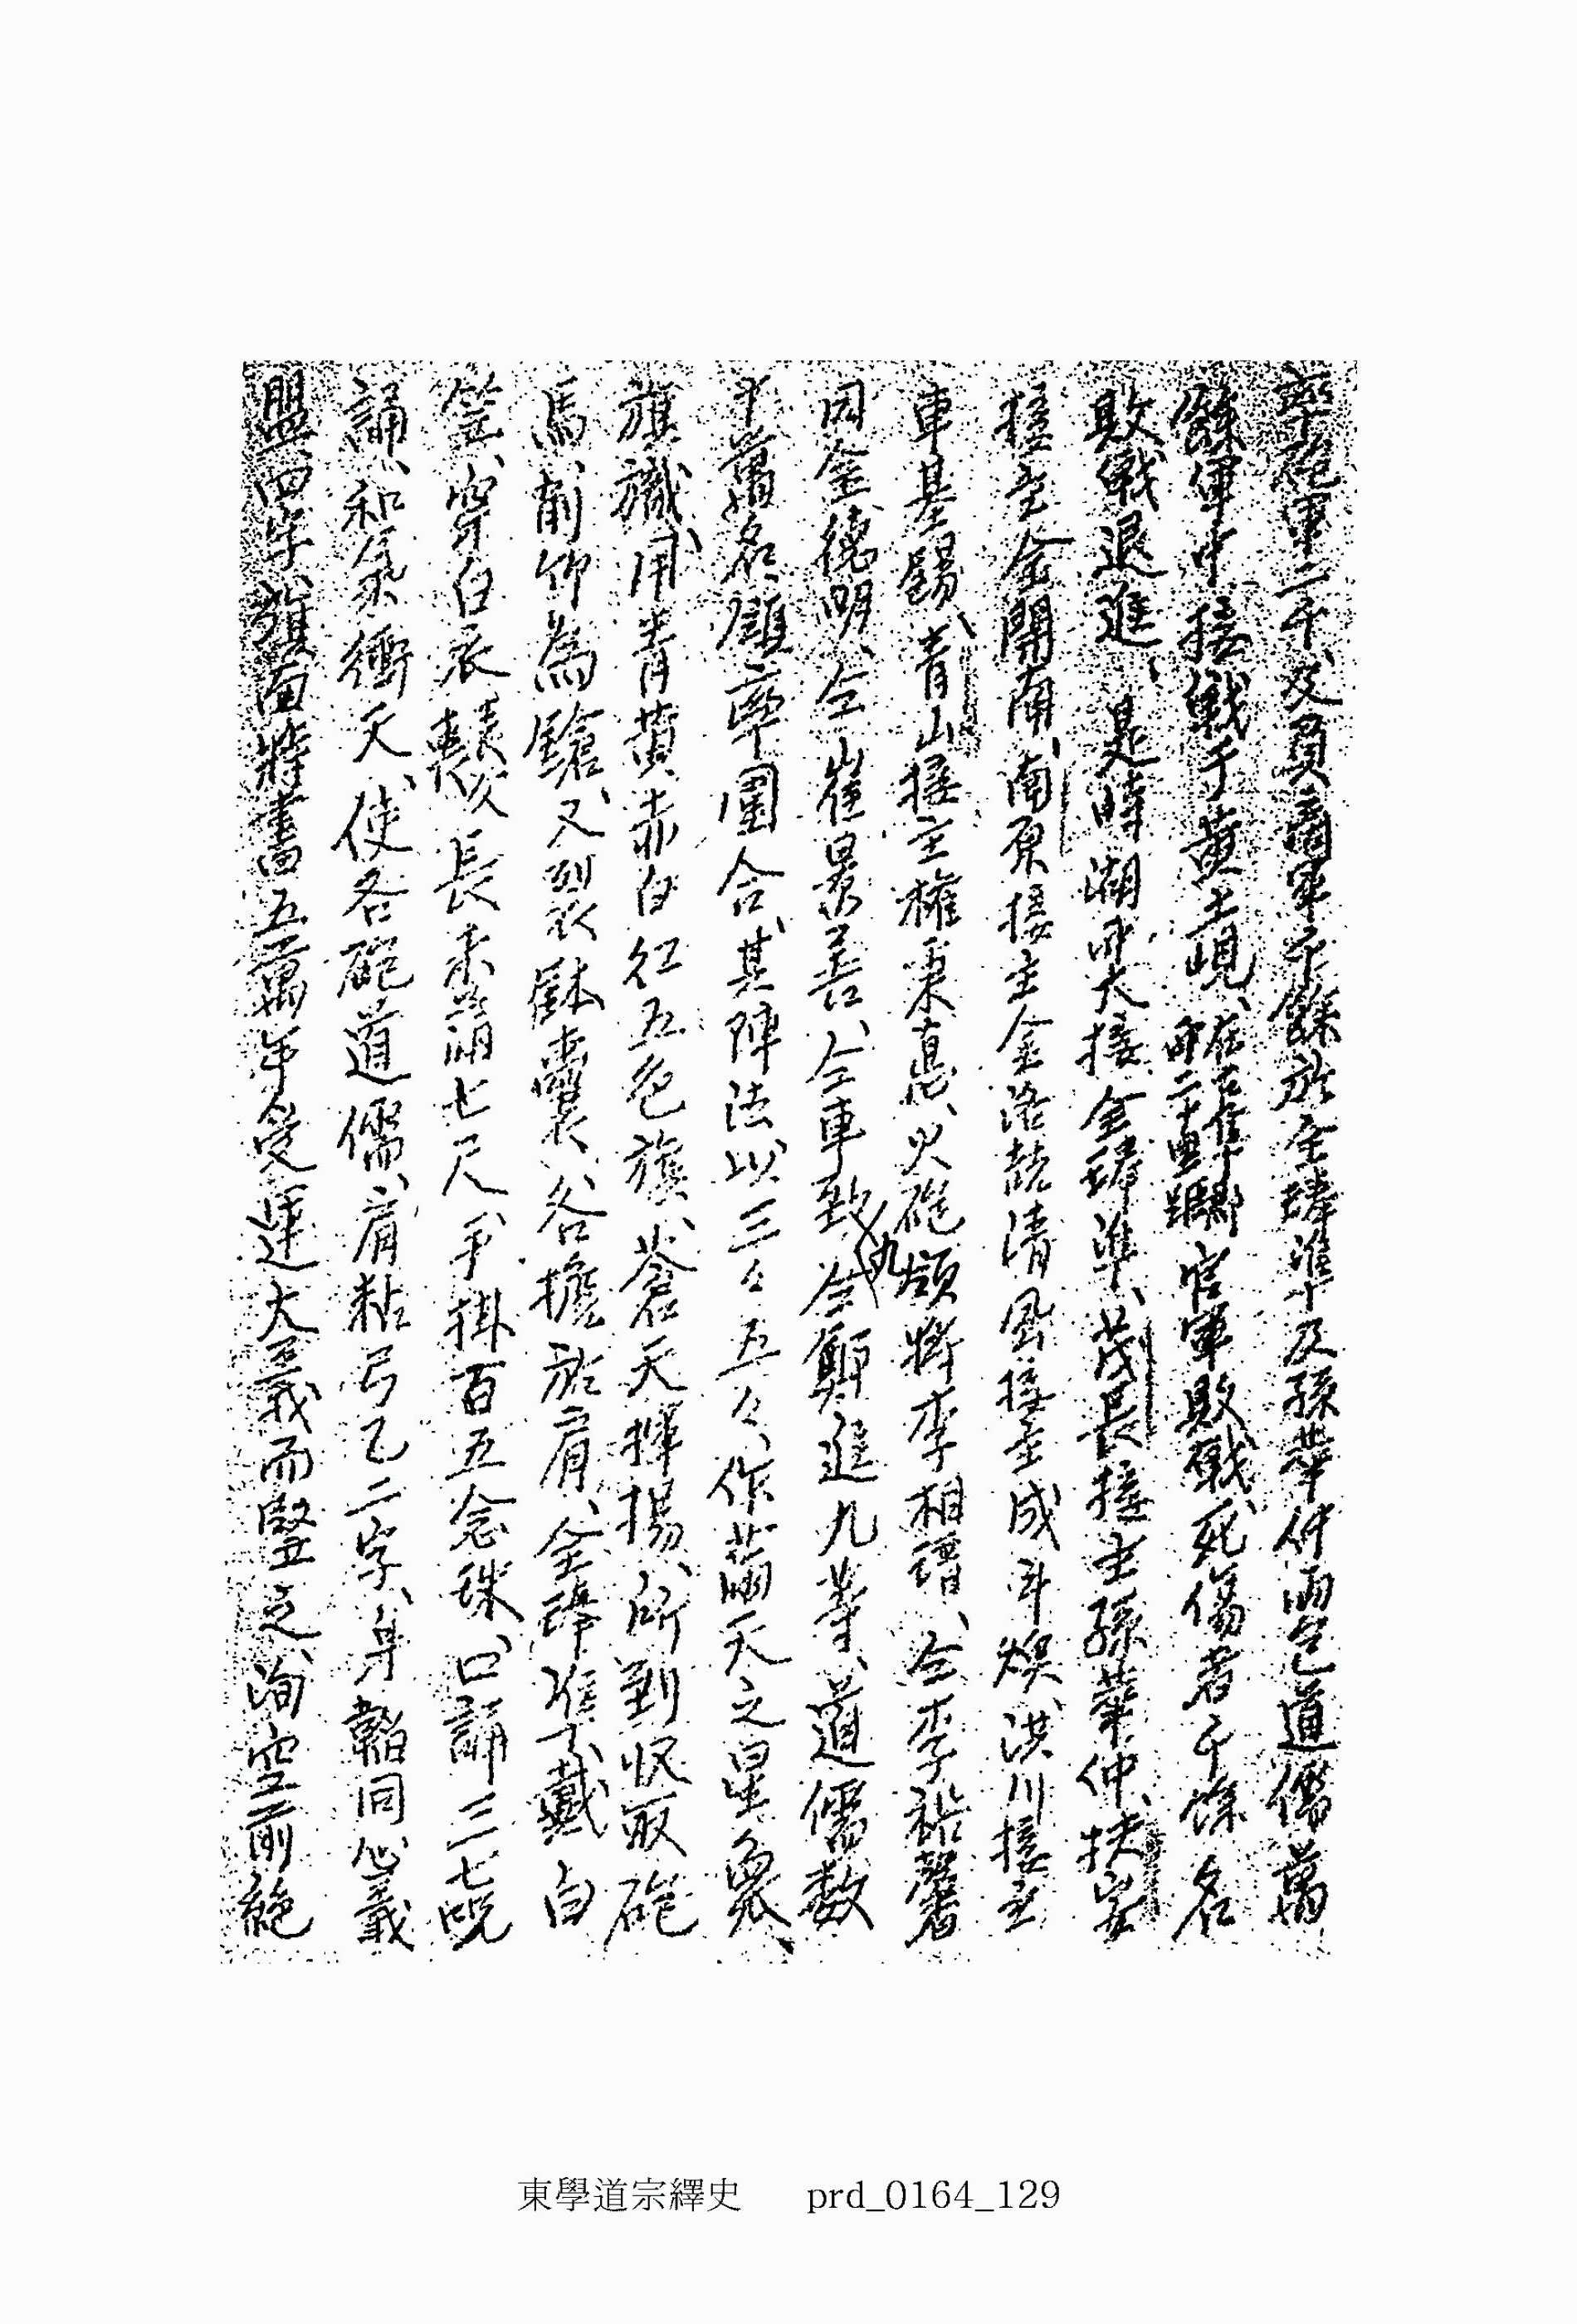 率砲軍二千、及負商軍千餘於全琫準及孫華仲両包道儒萬
餘軍中、接戰于黃土峴、官軍敗戰、死傷者千餘名
敗戰退進、是時湖南大接全琫準、茂長接主孫華仲、扶安
接主金開南、南原接主金洛喆清風接主成斗煥、洪川接主
車基錫、青山接主權秉悳、火砲領將李相禧、仝李裕馨
同金德明、仝崔景善、仝車致九仝鄭進九等、道儒数
十萬名、領率團合、其陣法以三々五々、作滿天之星象、
旗識、用青黃赤白紅五色旗、蒼天揮揚、所到收取砲
馬、前竹為鎗、又裂囊、各擔於肩、全琫準、戴白
笠、穿白衣、長未滿七尺、手掛百五念珠、口誦三七呪
誦、和氣衝天、使各砲道儒、肩粘弓乙二字、身韜同心義
盟四字、旗面特書五萬年受運大義而竪之、洵空前絶
東學道宗繹史 prd_0164_129